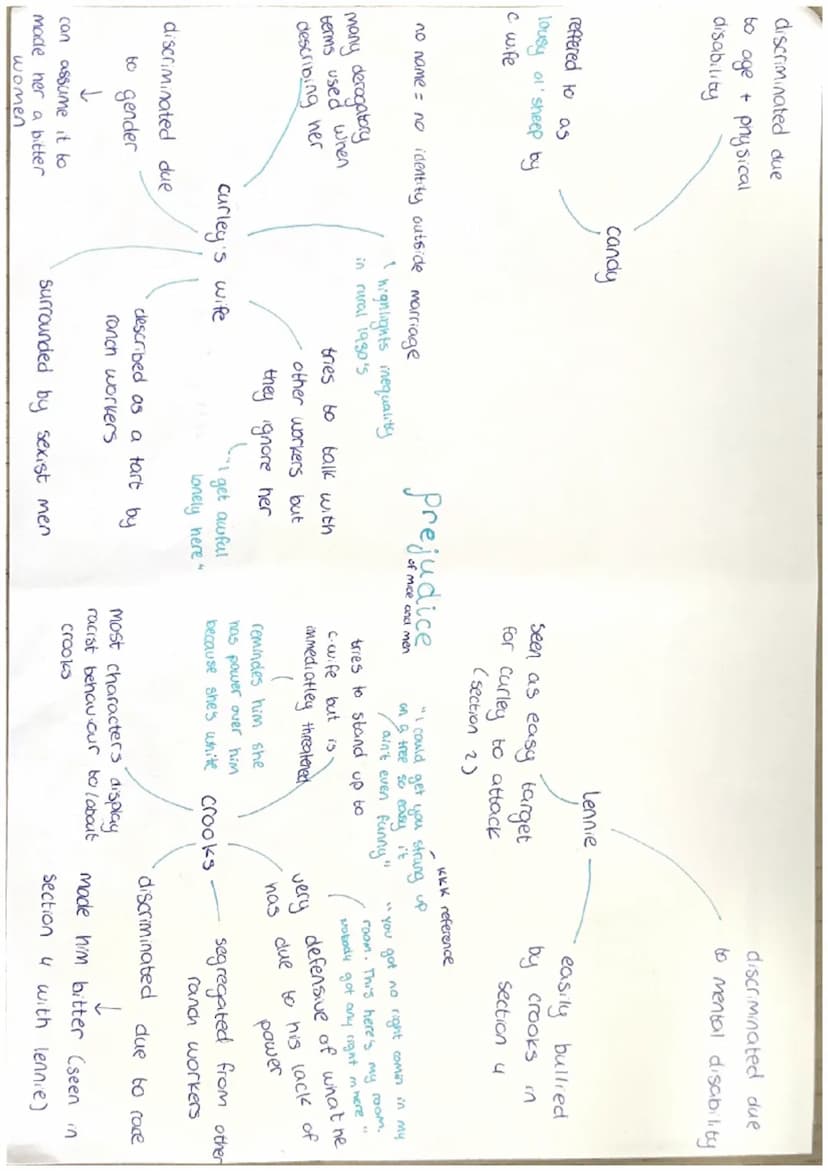 discriminated due
to age + physical
disability
candy
reffered to as
lousy ol' sheep by
c wife
discriminated due
to mental disability
lennie
seen as easy target
for curley to attack
(section 2)
easily bullied
by crooks in
section 4
prejudice
of mice and men
no name = no identity outside marriage
highlights inequality
in rural 1930's
many derogatory
terms used when
describing her
curley's wife
tries to talk with
other workers but
they ignore her
"i get awful
lonely here"
discriminated due
to gender
↓
can assume it to
made her a bitter
women
described as a tart by
ranch workers
surrounded by sexist men
KKK reference
"i could get you strung up
on a tree so easy it
ain't even funny"
tries to stand up to
c.wife but is
immediatley threatened
remindes him she
has power over him
because she's white
"you got no right comin in my
room. This here's my room.
Nobody got any right in here"
very defensive of what he
has due to his lack of
power
crooks
segregated from other
ranch workers
most characters display
racist behaviour to/about
crooks
discriminated due to race
↓
made him bitter (seen in
section 4 with lennie)